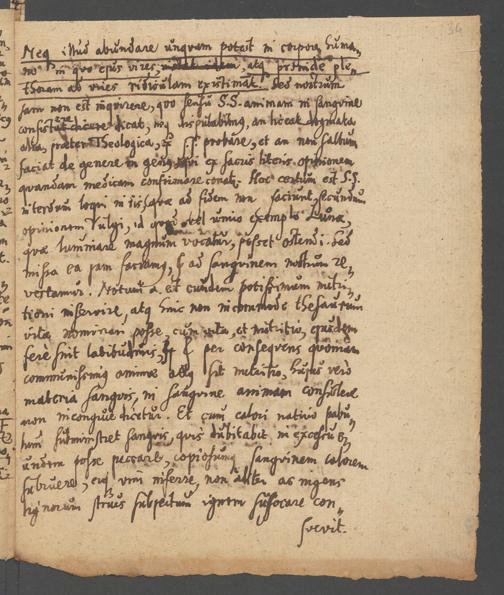 34
Neq illud abundare unquam potest in corpore huma-
no in quo ejus vires, atq proinde ple-
thoram ad vires ridiculam existimat. Sed nostrum
jam non est inquirere, quo sensu S.S. animam in sanguine
consistere dicat, neq disputabimus, an liceat dogmata
alia, praeter Theologica, ex SS probare, et an non saltum
faciat de genere in genus, qui ex sacris literis opinionem
quandam medicam confirmare conatur. Hoc certum est S.S.
interdum loqui in iis, quae ad fidem non faciunt, secundum
opinionem vulgi, id quod vel unico exemplo Lunae,
quae luminare magnum vocatur, posset ostendi. Sed
missa ea jam faciamus, & ad sanguinem nostrum re-
vertamur. Notum a. est eundem potissimum nutri-
tioni inservire, atq hinc non incommode thesaurum
vitae nominari posse, cum vita, et nutritio, ejusdem
fere sint latitudinis, & per consequens quoniam
communissima animae sit nutritio, hujus vero
materia sanguis, in sanguine animam consistere
non incongrue dicatur. Et cum calori nativo pabu-
lum subministret sanguis, quis dubitabit in excessu e-
undem posse peccare, copiosumq sanguinem calorem
subruere, ejq vim inferre, non aliter ac ingens
lignorum strues subjectum ignem suffocare con-
suevit.